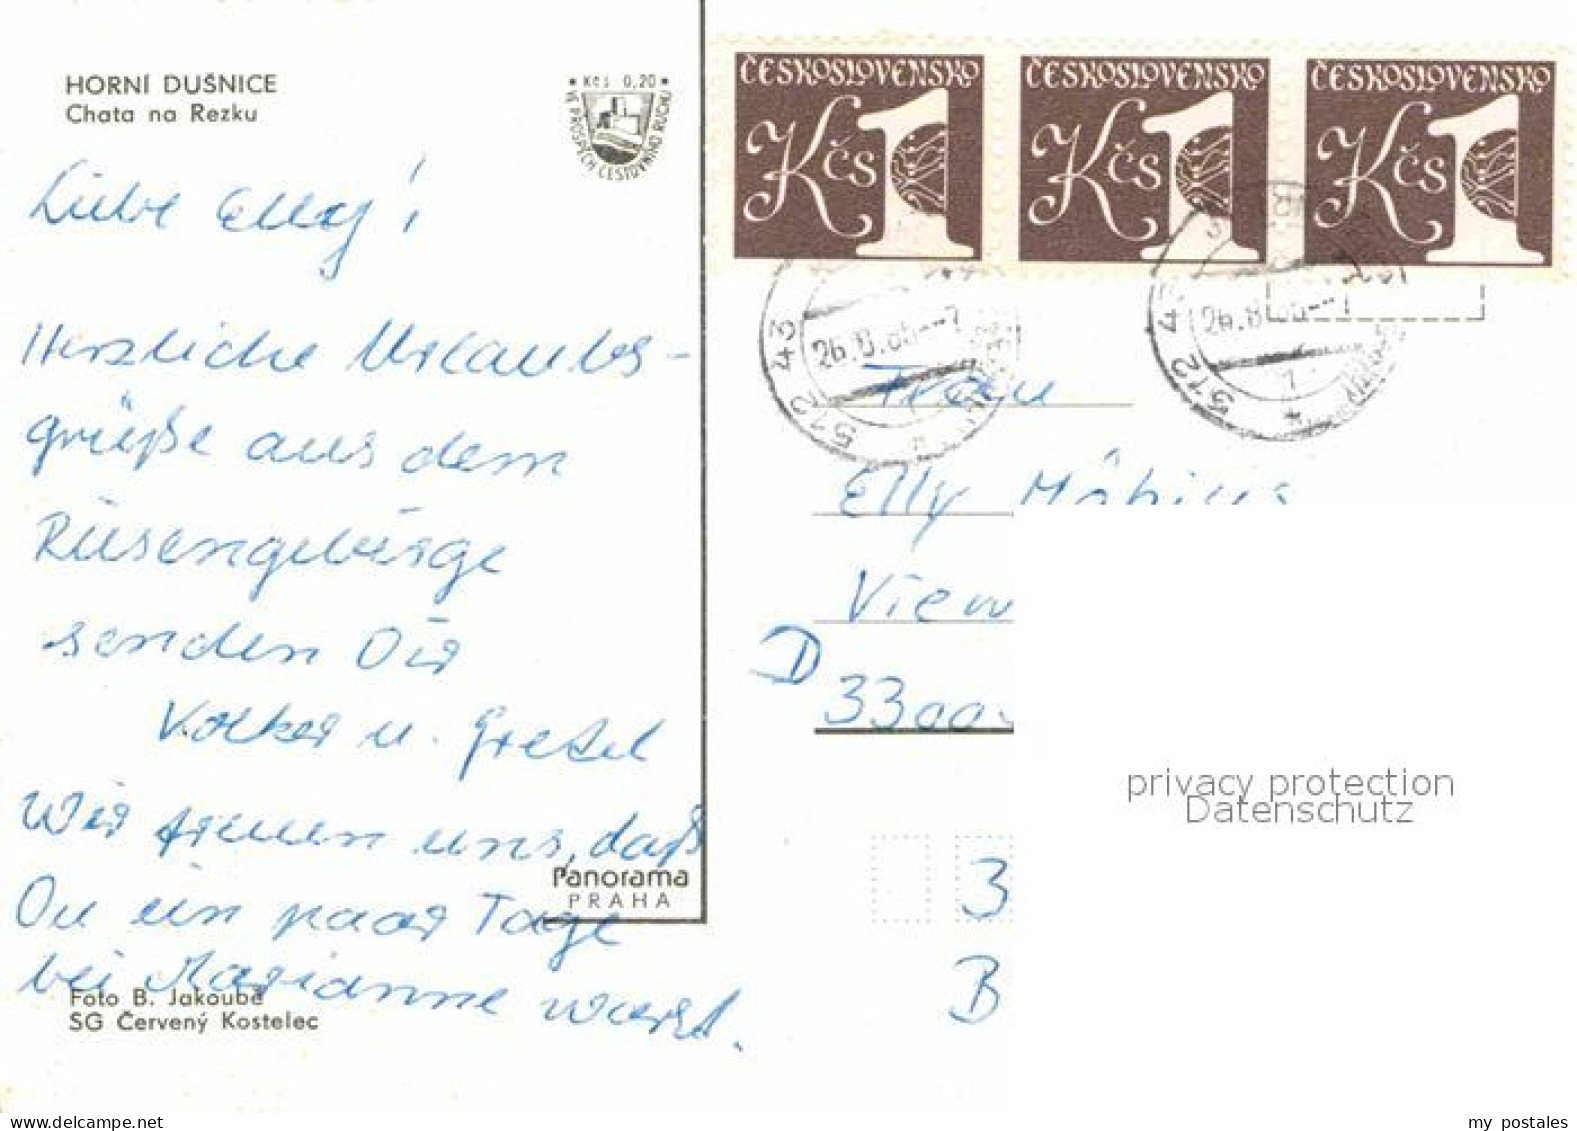 HORNÍ DUŠNICE
Chata na Rezku
• Kčs 0,20 •
VE PROSPĚCH CESTOVNÍHO RUCHU
Liebe Elly!
Herzliche Urlaubs-
grüße aus dem
Riesengebirge
senden Dir
Volker u. Gretel
Wir freuen uns, daß
Du ein paar Tage
bei Marianne warst.
Panorama
PRAHA
Foto B. Jakoubě
SG Červený Kostelec
ČESKOSLOVENSKO
Kčs 1
ČESKOSLOVENSKO
Kčs 1
ČESKOSLOVENSKO
Kčs 1
512 43
512 43
Frau
Elly Möbius
View
D
3300
3
B
privacy protection
Datenschutz
my postales